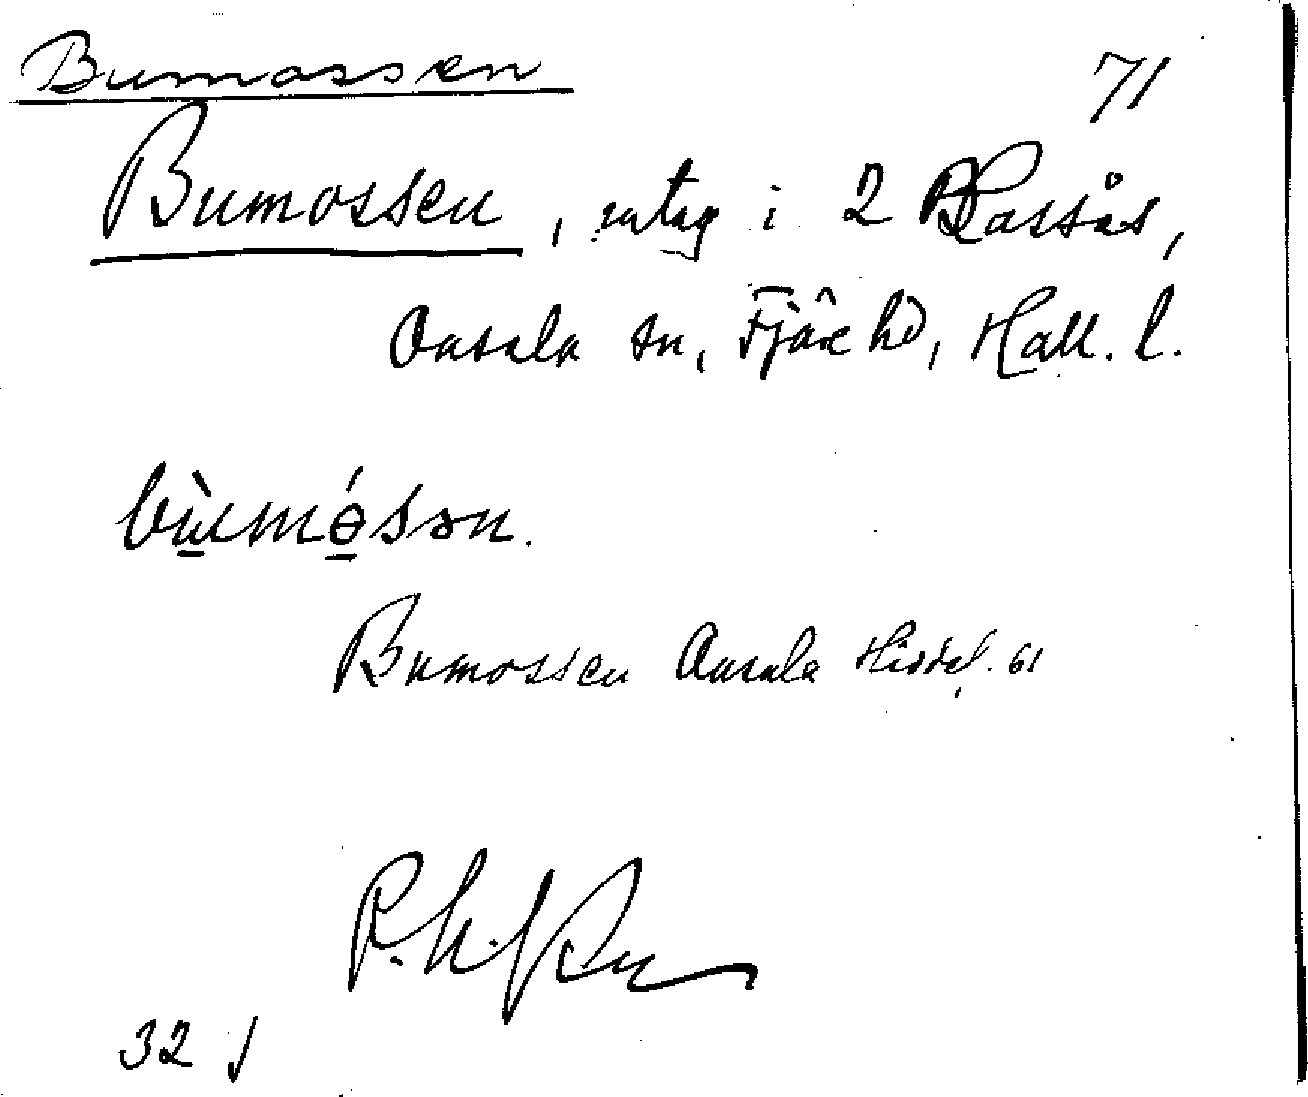 Bumossen
71
Bumossen, utag i 2 Rossås,
Onsala sn, Fjäre hd, Hall. l.
bùmósən.
Bumossen Onsala 61
32